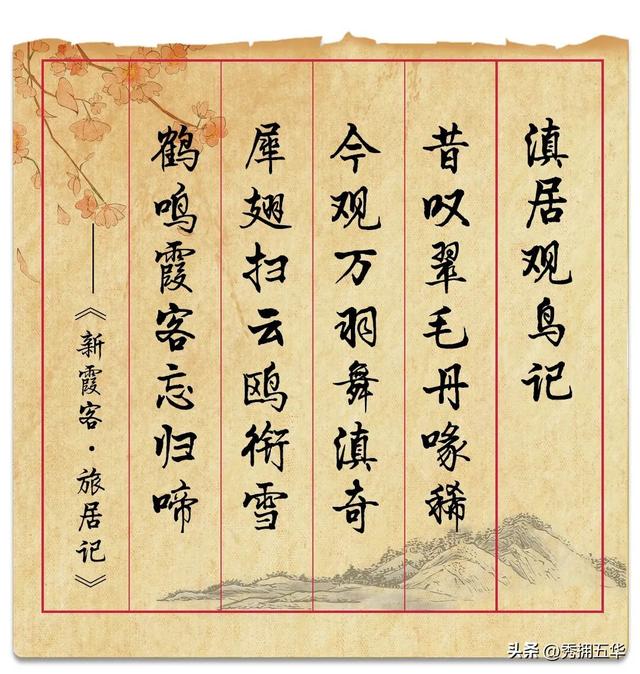 滇居观鸟记
昔叹翠毛丹喙稀
今观万羽舞滇奇
犀翅扫云鸥衔雪
鹤鸣霞客忘归啼
——《新霞客·旅居记》
头条 @秀拥五华